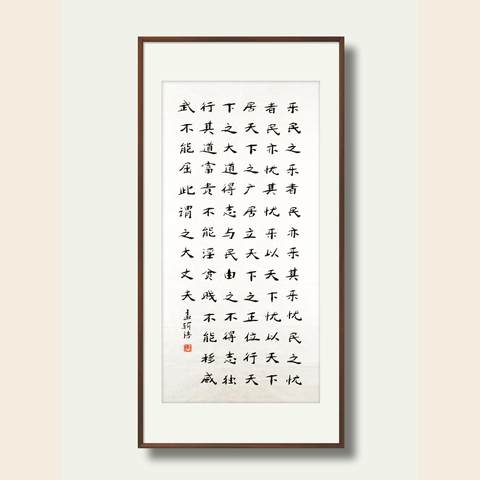 乐民之乐者民亦乐其乐忧民之忧
者民亦忧其忧乐以天下忧以天下
居天下之广居立天下之正位行天
下之大道得志与民由之不得志独
行其道富贵不能淫贫贱不能移威
武不能屈此谓之大丈夫